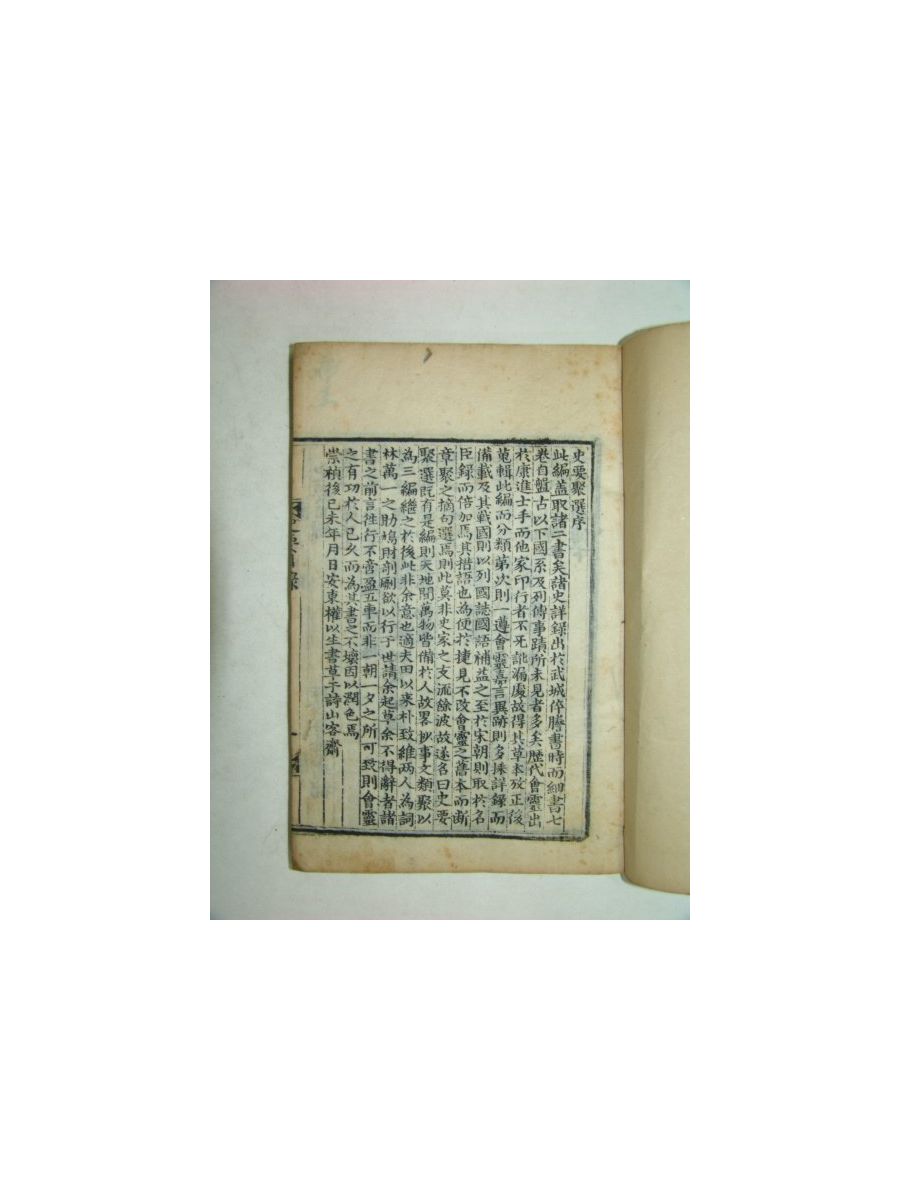 史要聚選序
此編盖取諸二書矣諸史詳録出於武城倅謄書時而細書七
卷自盤古以下國系及列傳事蹟所未見者多矣歷代會靈出
於康進士手而他家印行者不死訛漏處故得其草本攷正後
蒐輯此編而分類第次則一遵會靈嘉言異跡則多採詳録而
備載及其戰國則以列國誌國語補益之至於宋朝則取於名
臣録而倍加焉其措語也為便於捷見不改會靈之舊本而断
章聚之摘句選焉則此莫非史家之支流餘波故遂名曰史要
聚選旣有是編則天地間萬物皆備於人故畧抄事文類聚以
為三編継之於後此非余意也適夫田以采朴致維两人為詞
林萬一之助鳩財剞劂欲以行于世請余起草余不得辭者諸
書之前言徃行不啻盈五車而非一朝一夕之所可致則會靈
之有功於人已久而為其書之不壞因以潤色焉
崇禎後己未年月日安東權以生書草于詩山客齋